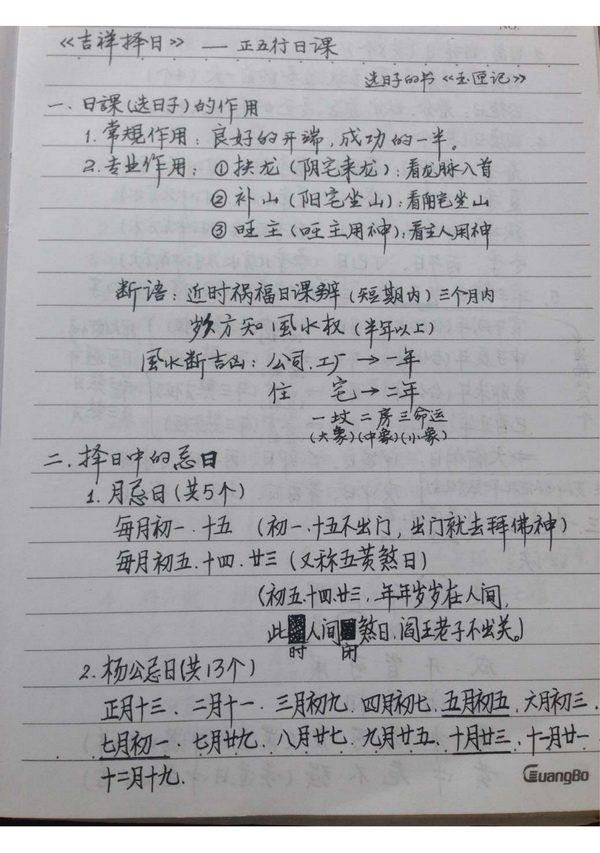 NO.
《吉祥择日》——正五行日课
选日子的书《玉匣记》
一.日課(选日子)的作用
1.常規作用:良好的开端,成功的一半。
2.专业作用:①扶龙(阴宅来龙):看龙脉入首
②补山(阳宅坐山):看阳宅坐山
③旺主(旺主用神):看主人用神
断语:近时祸福日课辨(短期内)三个月内
岁方知風水权(半年以上)
風水断吉凶:公司.工厂→一年
住 宅→二年
一坟二房三命运
(大象)(中象)(小象)
二.择日中的忌日
1.月忌日(共5个)
每月初一.十五 (初一.十五不出门,出门就去拜佛神)
每月初五.十四.廿三(又称五黄煞日)
(初五.十四.廿三,年年岁岁在人间,
此 人间 煞日,阎王老子不出关。)
时 闭
2.杨公忌日(共13个)
正月十三、二月十一、三月初九、四月初七、五月初五、六月初三、
七月初一、七月廿九、八月廿七、九月廿五、十月廿三、十一月廿一
十二月十九.
GuangBo